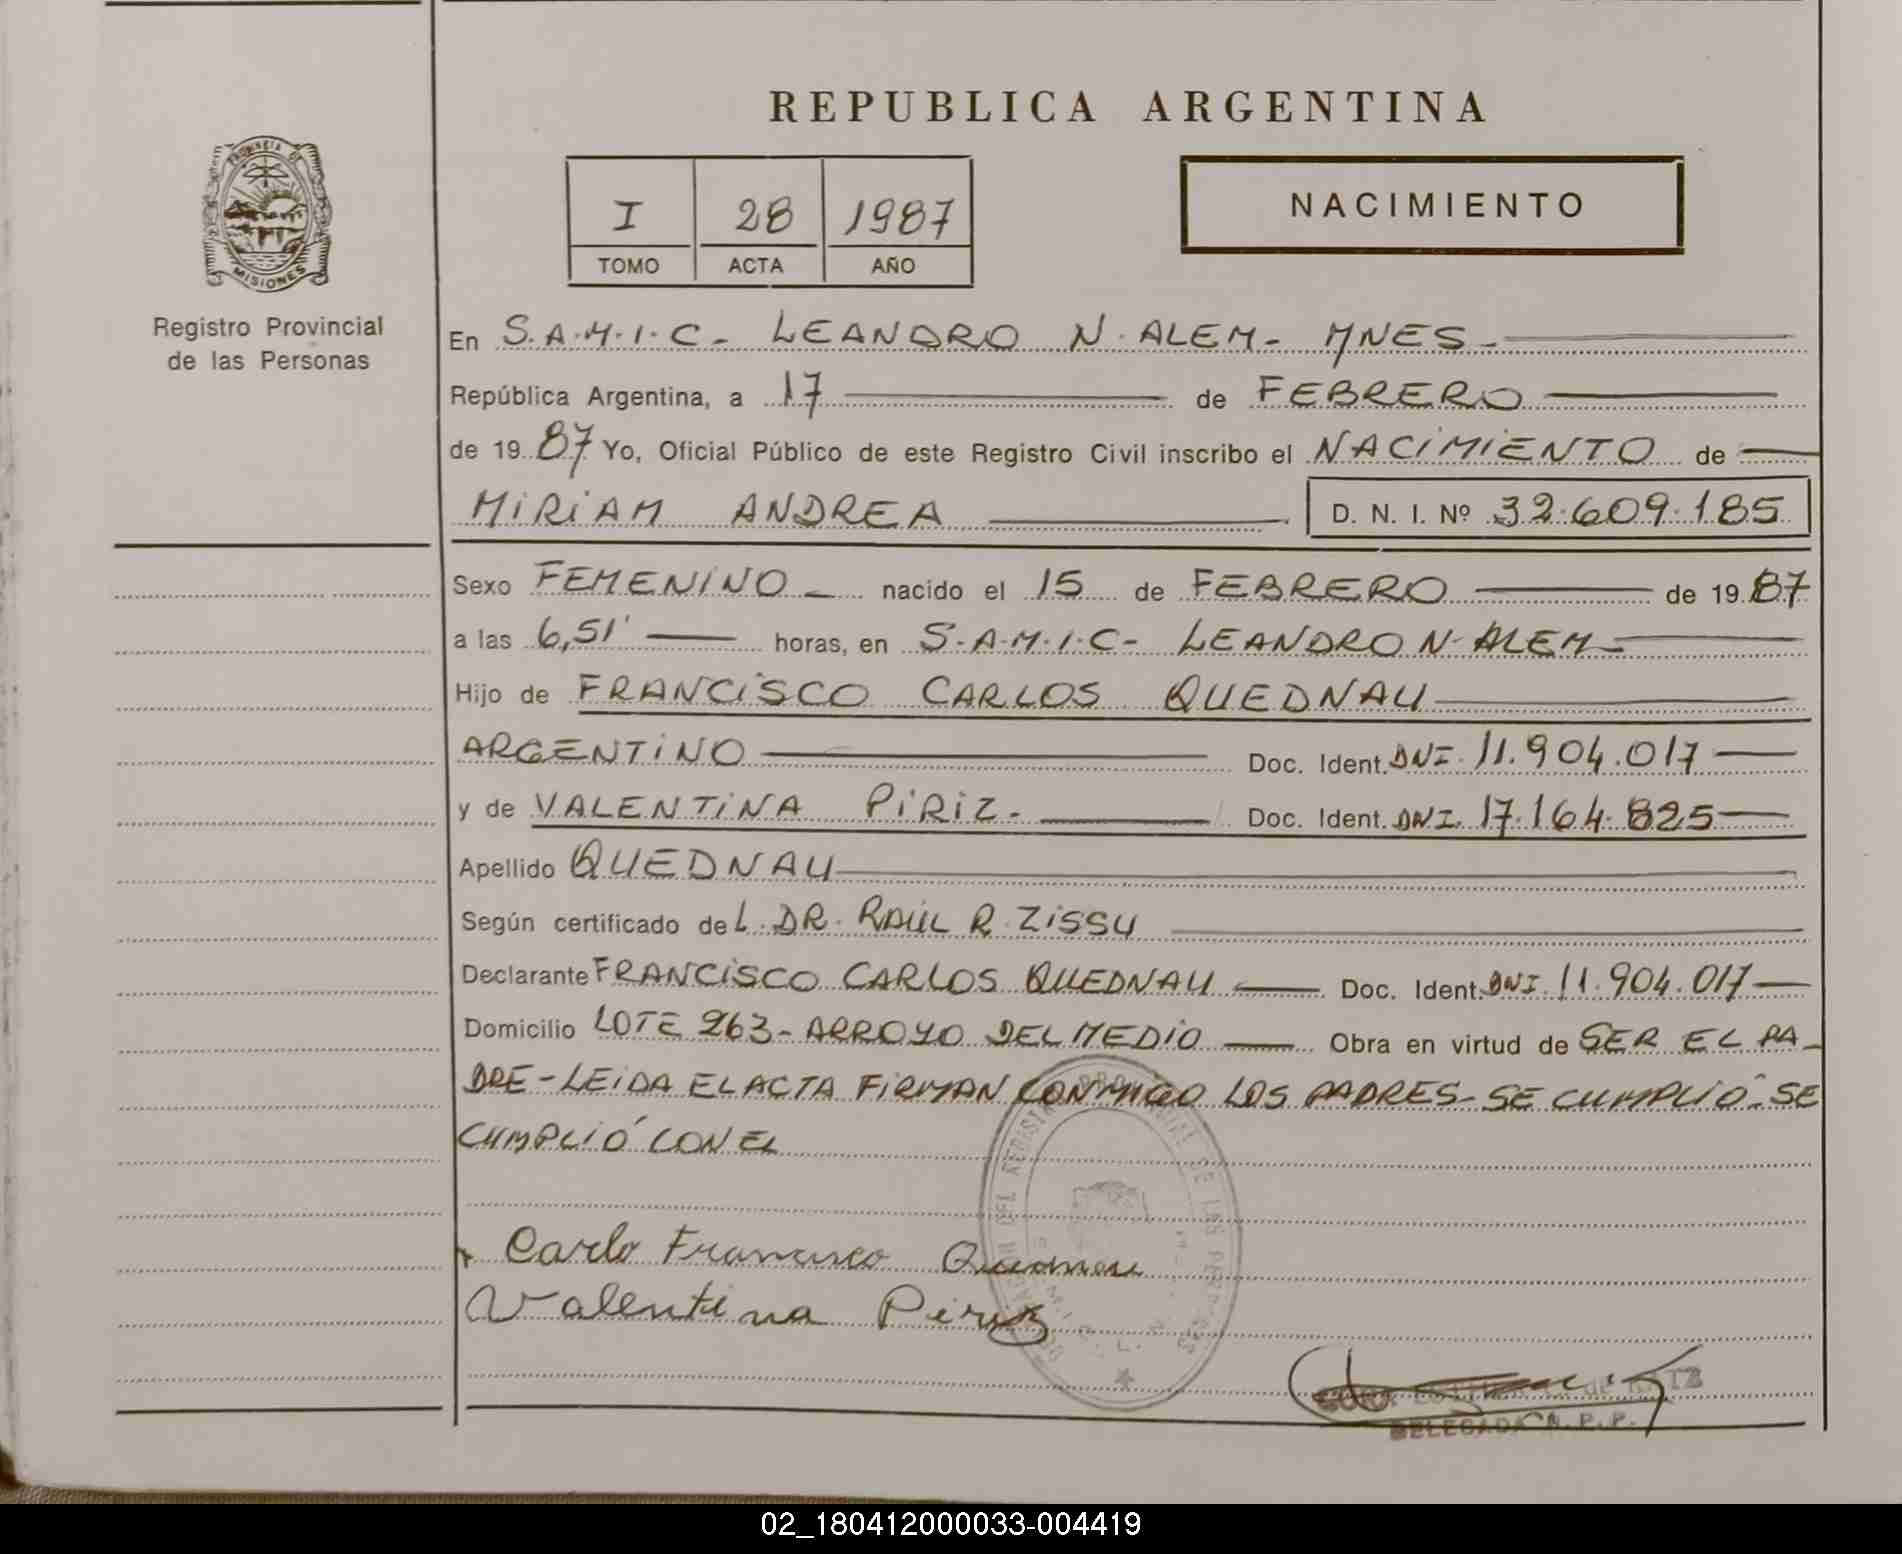 REPUBLICA ARGENTINA
PROVINCIA DE
MISIONES
Registro Provincial
de las Personas
I 28 1987
TOMO ACTA AÑO
NACIMIENTO
En S.A.M.I.C- LEANDRO N. ALEM- MNES-
República Argentina, a 17 de FEBRERO
de 1987 Yo, Oficial Público de este Registro Civil inscribo el NACIMIENTO de
MIRIAM ANDREA D. N. I. Nº 32.609.185
Sexo FEMENINO - nacido el 15 de FEBRERO de 1987
a las 6,51' horas, en S.A.M.I.C- LEANDRO N. ALEM
Hijo de FRANCISCO CARLOS QUEDNAU
ARGENTINO Doc. Ident. DNI. 11.904.017
y de VALENTINA PIRIZ. Doc. Ident. DNI. 17.164.825
Apellido QUEDNAU
Según certificado deL. DR. RAÚL R. ZISSU
Declarante FRANCISCO CARLOS QUEDNAU Doc. Ident. DNI. 11.904.017
Domicilio LOTE 263-ARROYO DEL MEDIO Obra en virtud de SER EL PA-
DRE-LEIDA EL ACTA FIRMAN CONMIGO LOS PADRES-SE CUMPLIÓ-SE
CUMPLIÓ CON EL
Carlo Francisco
Valentina Piriz
DELEGADA R.P.P.
02_180412000033-004419